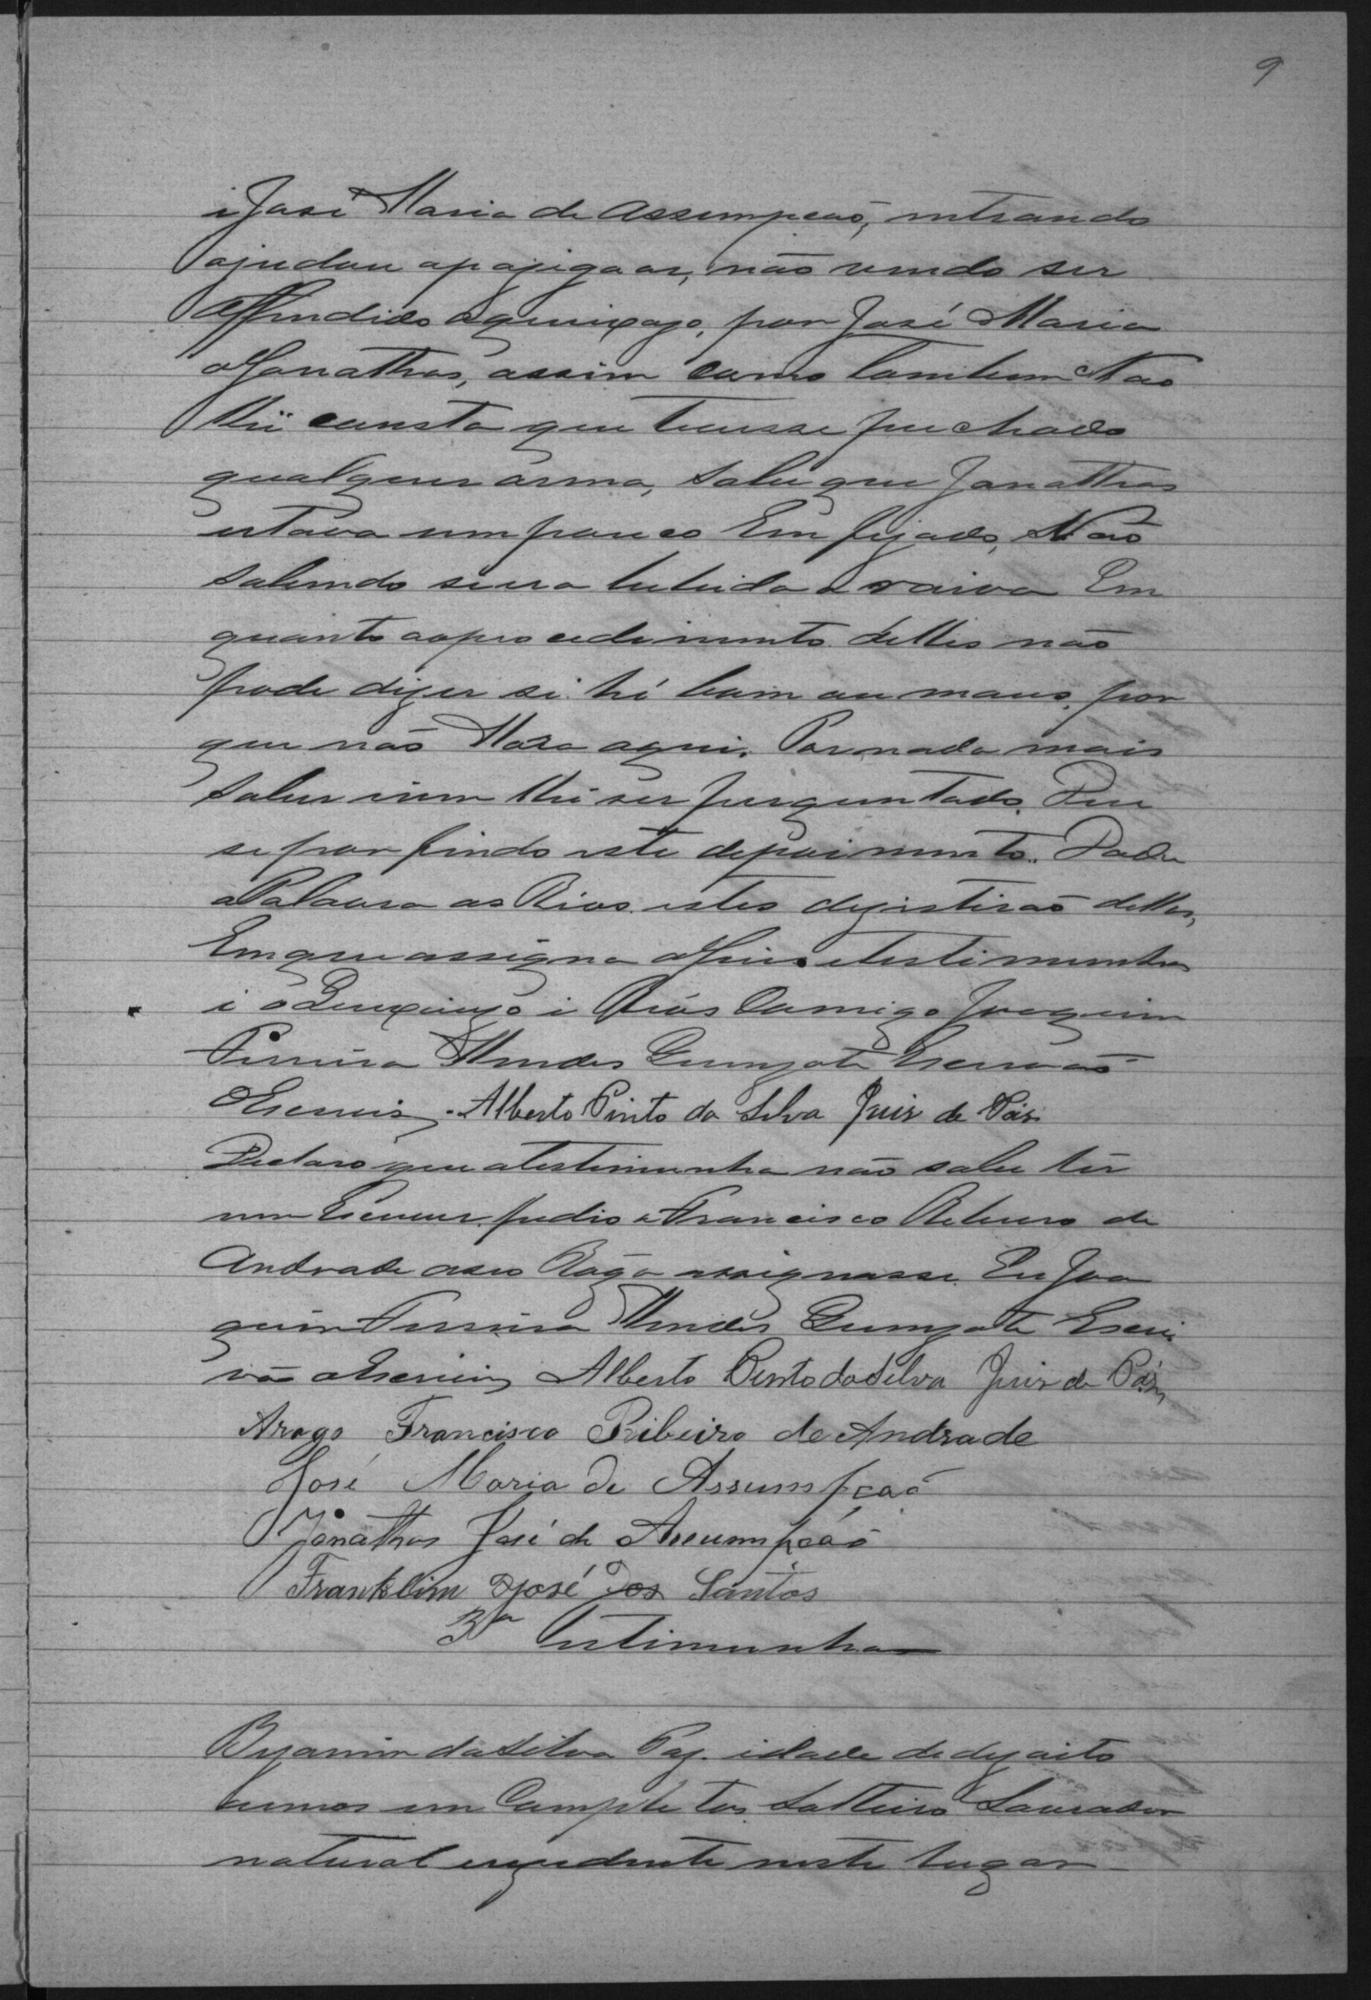 9
i José Maria de Assumpcaõ, entrando
ajudou apazigoar, não vendo ser
Offendido o queixozo, por José Maria
o Jonathas, assim como tambem Nao
lhi consta que tivesse puchado
qualquer arma, sabe que Jonathas
estava um pouco Em fezado, Não
sabendo se era bebida o raiva Em
quanto ao procedimento delles não
pode dizer si hé bom ou maus, por
que não Mora aqui. Por nada mais
saber nem lhi ser perguntado. Deu
se por findo este depoimento. Dada
a Palavra as Rios estes dezistiraõ della,
Em que assigna o Juis e testimunha
i o Queixozo i Rios Comigo Joaquim
Ferreira Mendes Escrivaõ
Escrevi. Alberto Pinto da Silva Juiz de Páz
Declaro que a testimunha não sabe ler
nem Escrever, pedio a Francisco Ribeiro de
Andrade aseo Rogo assignasse. Eu Joa
quim Ferreira Mendes Escri
vão o Escrevi Alberto Pinto da Silva Juiz de Páz,
Arogo Francisco Ribeiro de Andrade
José Maria de Assumpçaõ
Jonathas José de Assumpçaõ
Franklim José dos Santos
3ª Testimunha
Byamim da Silva Paz. idade dedezoito
annos em Completos Solteiro Lavrador
natural erezidente neste lugar